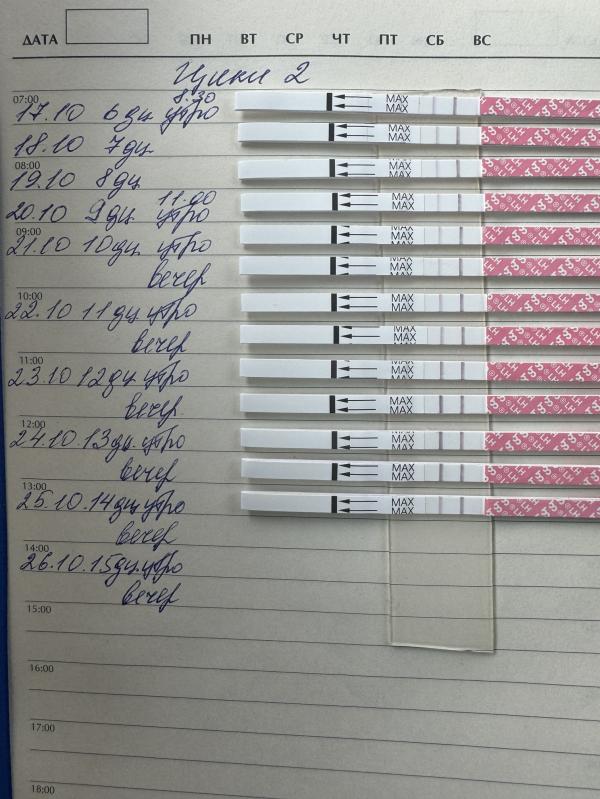 ДАТА ПН ВТ СР ЧТ ПТ СБ ВС
Цикл 2
07:00 8.30
17.10 6 дц утро MAX MAX
18.10 7 дц MAX MAX
08:00
19.10 8 дц MAX MAX
11.00
20.10 9 дц утро MAX MAX
09:00
21.10 10 дц утро MAX MAX
вечер MAX MAX
10:00
22.10 11 дц утро MAX MAX
вечер MAX MAX
11:00
23.10 12 дц утро MAX MAX
вечер MAX MAX
12:00
24.10.13 дц утро MAX MAX
вечер MAX MAX
13:00
25.10.14 дц утро MAX MAX
вечер
14:00
26.10.15 дц утро
вечер
15:00
16:00
17:00
18:00